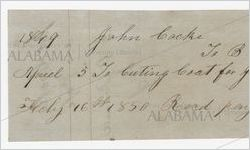 1849 John Cocke
To B
April 3 To Cuting Coat for y
Feby 16th 1850 Recd pay
ALABAMA
ALABAMA